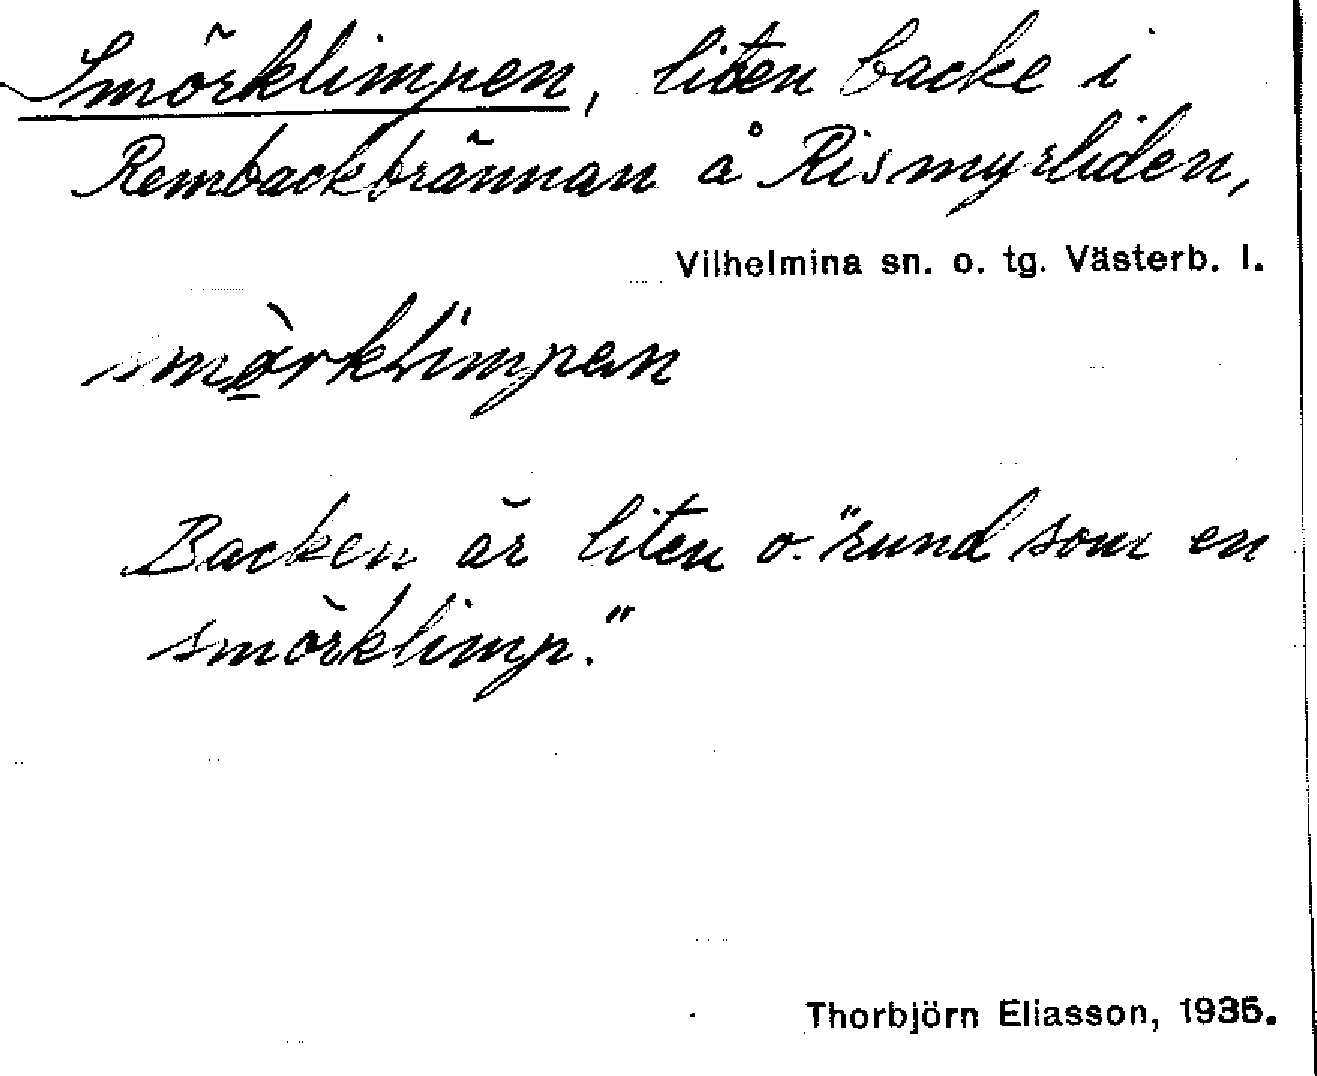 Smörklimpen, liten backe i
Rembackbrännan å Rismyrliden,
Vilhelmina sn. o. tg. Västerb. l.
smö̀rklimpen
Backen är liten o. "rund som en
smörklimp."
Thorbjörn Eliasson, 1935.